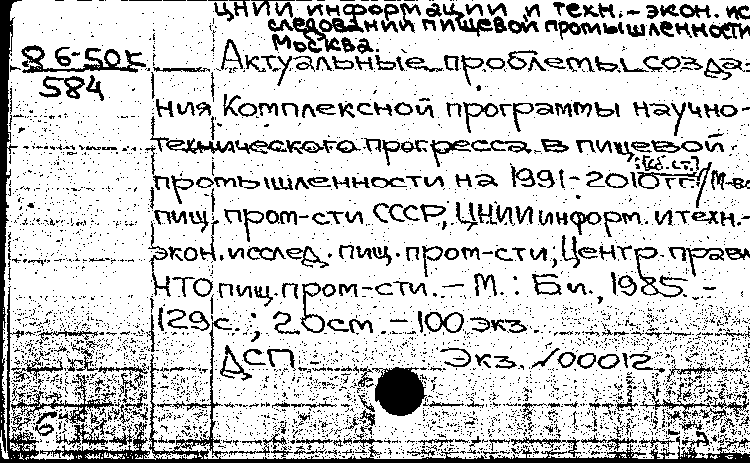 ЦНИИ информации и техн. - экон. ис
следований пищевой промышленности
Москва.
86-50к
584
Актуальные проблемы созда-
ния Комплексной программы научно-
технического прогресса в пищевой
:[Сб. ст.]/
промышленности на 1991-2010гг. /М-во
пищ. пром-сти СССР, ЦНИИ информ. и техн.-
экон. исслед. пищ. пром-сти, Центр. правл
НТО пищ. пром-сти. - М. : Б.и., 1985. -
129с. ; 20см. - 100 экз.
ДСП Экз. №00012.